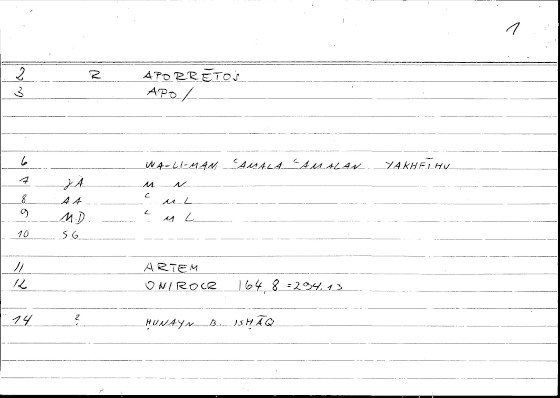 1
2 R APORRĒTOS
3 APO/
6 WA-LI-MAN ʿAMALA ʿAMALAN YAKHFĪHU
7 JA M N
8 AA ʿ M L
9 MD ʿ M L
10 SG
11 ARTEM
12 ONIROCR 164,8=294.13
14 ? ḤUNAYN B. ISḤĀQ